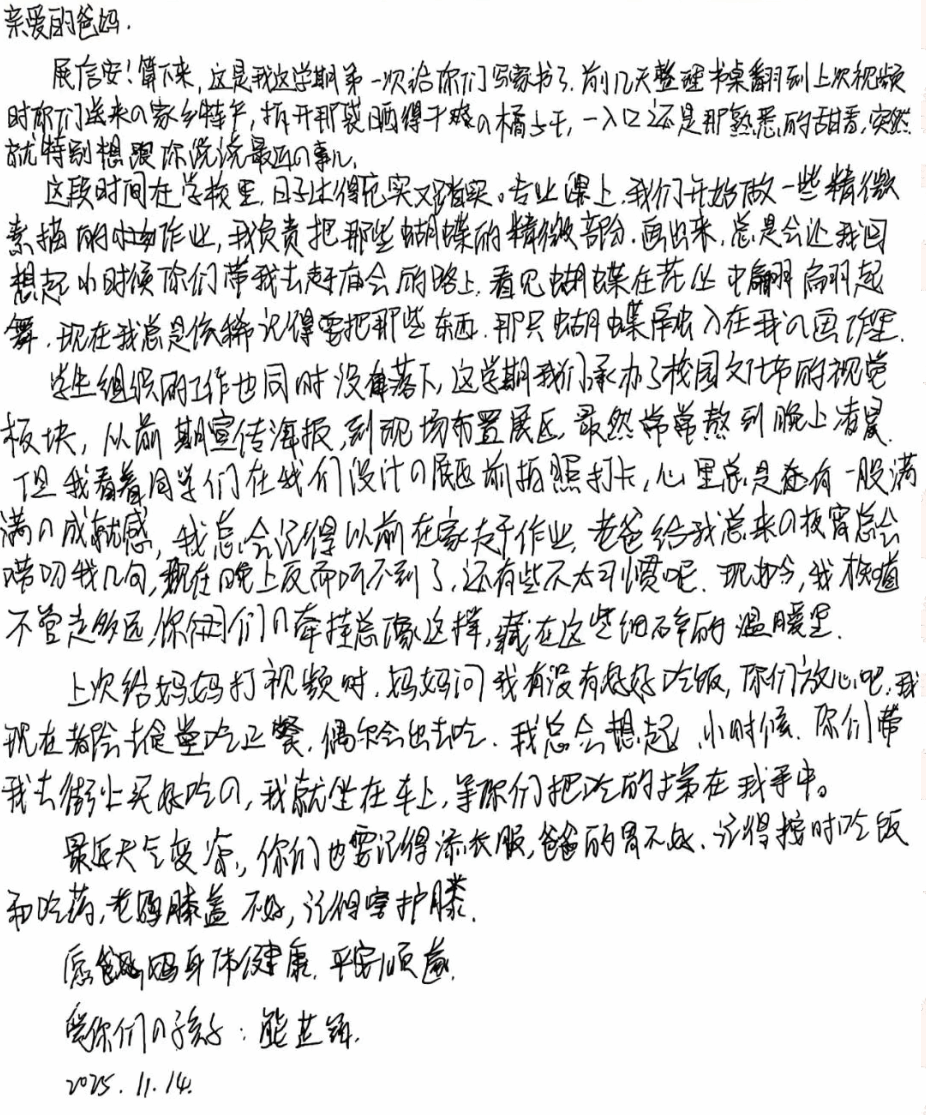 亲爱的爸妈.
展信安!算下来,这是我这学期第一次给你们写家书了.前几天整理书桌翻到上次视频
时你们送来の家乡特产,拆开那袋晒得干燥の橘子干,一入口还是那熟悉的甜香,突然
就特别想跟你说说最近の事儿.
这段时间在学校里,日子过得充实又踏实。专业课上,我们开始做一些精微
素描的作业,我负责把那些蝴蝶的精微部分.画出来,总是会让我回
想起小时候你们带我去赶庙会的路上,看见蝴蝶在花丛中翩翩起
舞.现在我总是依稀记得要把那些东西.那只蝴蝶融入在我の画作里.
学生组织的工作也同时没有落下,这学期我们承办了校园文化节的视觉
板块,从前期宣传海报,到现场布置展区,虽然常常熬到晚上凌晨.
但我看着同学们在我们设计の展区前拍照打卡,心里总是还有一股满
满の成就感,我总会记得以前在家赶作业,老爸给我端来の夜宵总会
唠叨我几句,现在晚上反而听不到了,还有些不太习惯呢.现如今,我知道
不管走多远,你们の牵挂总像这样,藏在这些细碎的温暖里.
上次给妈妈打视频时,妈妈问我有没有好好吃饭,你们放心吧,我
现在都会去食堂吃正餐.偶尔会出去吃.我总会想起,小时候,你们带
我去街上买好吃の,我就坐在车上,等你们把吃的拿在我手中。
最近天气变凉,你们也要记得添衣服,爸爸的胃不好,记得按时吃饭
和吃药,老妈膝盖不好,记得穿护膝.
愿爸妈身体健康.平安顺意.
爱你们の孩子:熊芷
2025.11.14.